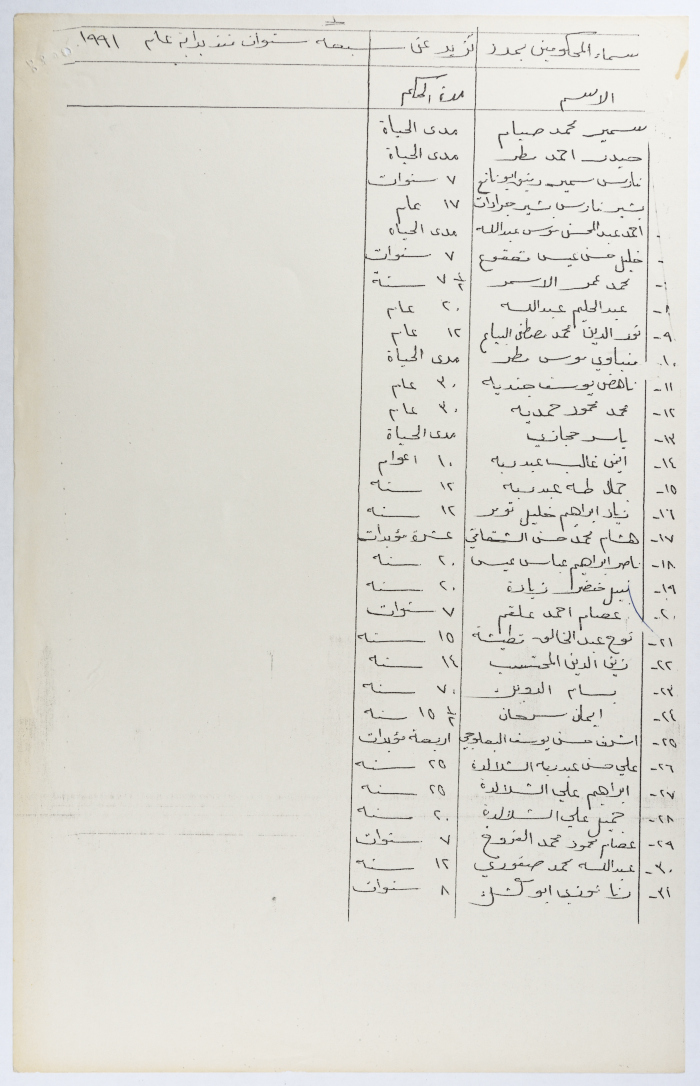 سماء المحكومين بمدد تزيد عن سبعة سنوات منذ بداية عام ١٩٩١
الاسم مدة الحكم
سمير محمد صيام مدى الحياة
حيدر احمد مطر مدى الحياة
فارس سمير ابو نافع ٧ سنوات
بشير فارس بشير جرادات ١٧ عام
احمد عبد المحسن موسى عبدالله مدى الحياه
خليل حسن عيسى ٧ سنوات
محمد عمر الاسمر ٧ ١/٢ سنة
٨- عبد الحليم عبدالله ٢٠ عام
٩- نور الدين محمد مصطفى البياع ١٢ عام
١٠- موسى مطر مدى الحياة
١١- ناهض يوسف جنديه ٣٠ عام
١٢- محمد محمود حمديه ٣٠ عام
١٣- ياسر حجازي مدى الحياة
١٤- ايمن غالب عبد ربه ١٠ اعوام
١٥- جمال طه عبد ربه ١٢ سنه
١٦- زياد ابراهيم خليل ١٢ سنه
١٧- هشام محمد حسن عشرة مؤبدات
١٨- ناصر ابراهيم عباس عيسى ٢٠ سنه
١٩- نبيل خضر زيادة ٢٠ سنه
٢٠- عصام احمد علقم ٧ سنوات
٢١- نوح عبد الخالق ١٥ سنه
٢٢- زين الدين المحتسب ١٤ سنه
٢٣- بسام الدويك ٧٠ سنه
٢٤- ايمان سرحان ١٥ ١/٢ سنه
٢٥- اشرف حسن يوسف البعلوجي اربعة مؤبدات
٢٦- علي حسن عبد ربه الشلالدة ٢٥ سنه
٢٧- ابراهيم علي الشلالدة ٢٥ سنه
٢٨- جميل علي الشلالدة ٢٠ سنه
٢٩- عصام محمود محمد الفروخ ٧ سنوات
٣٠- عبدالله محمد صفوري ١٢ سنه
٣١- رنا ابو كشك ٨ سنوات